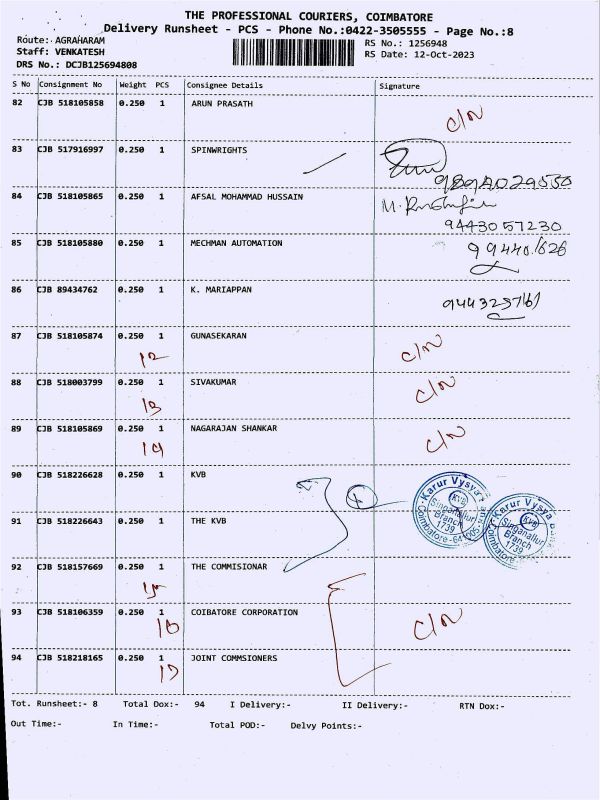 THE PROFESSIONAL COURIERS, COIMBATORE
Delivery Runsheet - PCS - Phone No.:0422-3505555 - Page No.:8
Route: AGRAHARAM RS No.: 1256948
Staff: VENKATESH RS Date: 12-Oct-2023
DRS No.: DCJB125694808
S No Consignment No Weight PCS Consignee Details Signature
82 CJB 518105858 0.250 1 ARUN PRASATH
C/N
83 CJB 517916997 0.250 1 SPINWRIGHTS
84 CJB 518105865 0.250 1 AFSAL MOHAMMAD HUSSAIN
9443057230
85 CJB 518105880 0.250 1 MECHMAN AUTOMATION
86 CJB 89434762 0.250 1 K. MARIAPPAN
87 CJB 518105874 0.250 1 GUNASEKARAN
12 C/N
88 CJB 518003799 0.250 1 SIVAKUMAR
13 C/N
89 CJB 518105869 0.250 1 NAGARAJAN SHANKAR
14 C/N
90 CJB 518226628 0.250 1 KVB
Karur Vysya
KVB
Singanallur
Branch
1739
Coimbatore
Karur Vysya
KVB
Singanallur
Branch
1739
Coimbatore
91 CJB 518226643 0.250 1 THE KVB
92 CJB 518157669 0.250 1 THE COMMISIONAR
15
93 CJB 518106359 0.250 1 COIBATORE CORPORATION
16 C/N
94 CJB 518218165 0.250 1 JOINT COMMSIONERS
17
Tot. Runsheet:- 8 Total Dox:- 94 I Delivery:- II Delivery:- RTN Dox:-
Out Time:- In Time:- Total POD:- Delvy Points:-